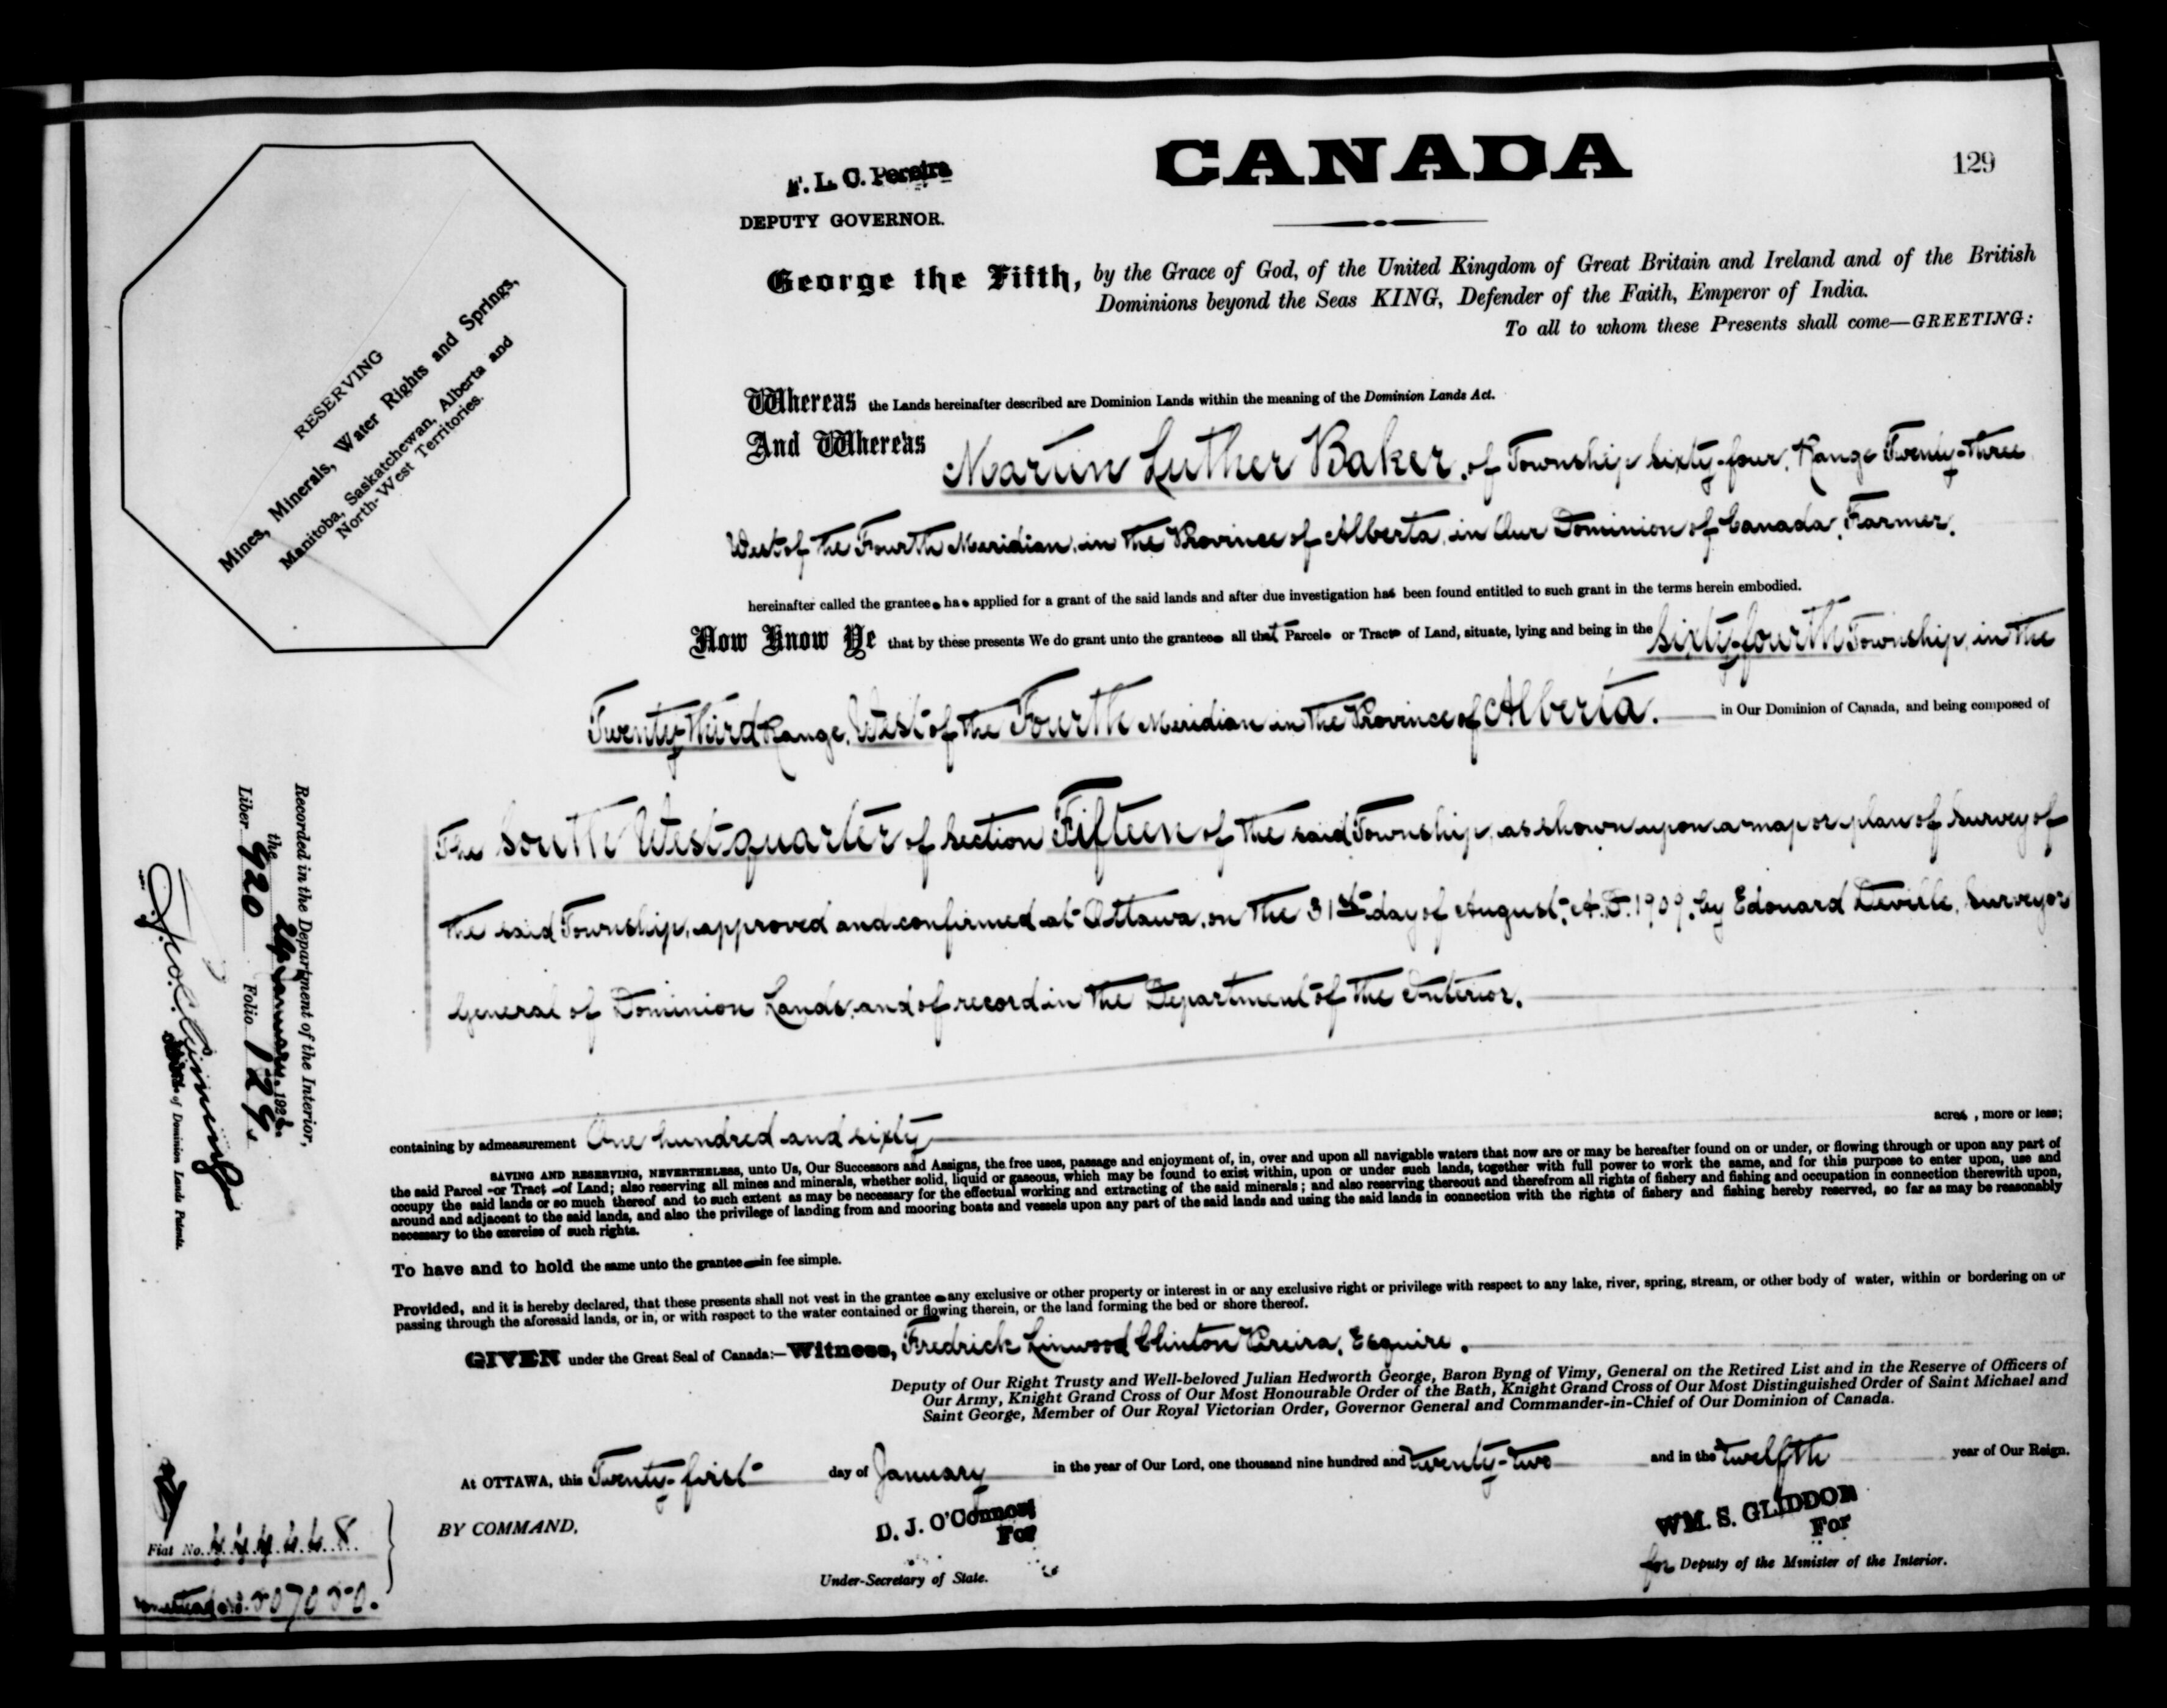 CANADA
129
F. L. C. Pereira
DEPUTY GOVERNOR.
George the Fifth, by the Grace of God, of the United Kingdom of Great Britain and Ireland and of the British
Dominions beyond the Seas KING, Defender of the Faith, Emperor of India.
To all to whom these Presents shall come—GREETING:
RESERVING
Mines, Minerals, Water Rights and Springs,
Manitoba, Saskatchewan, Alberta and
North-West Territories.
Whereas the Lands hereinafter described are Dominion Lands within the meaning of the Dominion Lands Act.
And Whereas Martin Luther Baker, of Township sixty-four, Range Twenty-three
West of the Fourth Meridian, in the Province of Alberta, in Our Dominion of Canada, Farmer,
hereinafter called the grantee has applied for a grant of the said lands and after due investigation has been found entitled to such grant in the terms herein embodied.
Now Know Ye that by these presents We do grant unto the grantee all that Parcel or Tract of Land, situate, lying and being in the sixty-fourth Township, in the
Twenty-third Range, West of the Fourth Meridian in the Province of Alberta. in Our Dominion of Canada, and being composed of
The South West quarter of Section Fifteen of the said Township, as shown upon a map or plan of Survey of
the said Township, approved and confirmed at Ottawa, on the 31st day of August, A.D. 1909, by Edouard Deville, Surveyor
General of Dominion Lands, and of record in the Department of the Interior.
containing by admeasurement One hundred and sixty acres, more or less;
SAVING AND RESERVING, NEVERTHELESS, unto Us, Our Successors and Assigns, the free uses, passage and enjoyment of, in, over and upon all navigable waters that now are or may be hereafter found on or under, or flowing through or upon any part of
the said Parcel or Tract of Land; also reserving all mines and minerals, whether solid, liquid or gaseous, which may be found to exist within, upon or under such lands, together with full power to work the same, and for this purpose to enter upon, use and
occupy the said lands or so much thereof and to such extent as may be necessary for the effectual working and extracting of the said minerals; and also reserving thereout and therefrom all rights of fishery and fishing and occupation in connection therewith upon,
around and adjacent to the said lands, and also the privilege of landing from and mooring boats and vessels upon any part of the said lands and using the said lands in connection with the rights of fishery and fishing hereby reserved, so far as may be reasonably
necessary to the exercise of such rights.
To have and to hold the same unto the grantee in fee simple.
Provided, and it is hereby declared, that these presents shall not vest in the grantee any exclusive or other property or interest in or any exclusive right or privilege with respect to any lake, river, spring, stream, or other body of water, within or bordering on or
passing through the aforesaid lands, or in, or with respect to the water contained or flowing therein, or the land forming the bed or shore thereof.
GIVEN under the Great Seal of Canada:—Witness, Fredrick Linwood Clinton Pereira, Esquire.
Deputy of Our Right Trusty and Well-beloved Julian Hedworth George, Baron Byng of Vimy, General on the Retired List and in the Reserve of Officers of
Our Army, Knight Grand Cross of Our Most Honourable Order of the Bath, Knight Grand Cross of Our Most Distinguished Order of Saint Michael and
Saint George, Member of Our Royal Victorian Order, Governor General and Commander-in-Chief of Our Dominion of Canada.
At OTTAWA, this Twenty-first day of January in the year of Our Lord, one thousand nine hundred and twenty-two and in the twelfth year of Our Reign.
BY COMMAND,
D. J. O'Connor
For
Under-Secretary of State.
WM. S. GLIDDON
For
for Deputy of the Minister of the Interior.
Recorded in the Department of the Interior,
the 24 January, 192
Liber 920 Folio 129
of Dominion Lands Patents.
Fiat No.